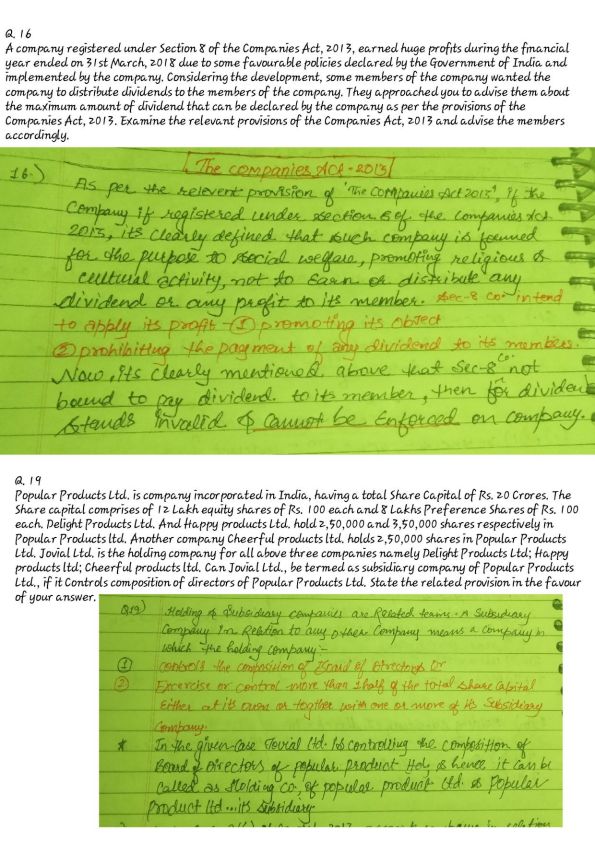 Q. 16
A company registered under Section 8 of the Companies Act, 2013, earned huge profits during the financial
year ended on 31st March, 2018 due to some favourable policies declared by the Government of India and
implemented by the company. Considering the development, some members of the company wanted the
company to distribute dividends to the members of the company. They approached you to advise them about
the maximum amount of dividend that can be declared by the company as per the provisions of the
Companies Act, 2013. Examine the relevant provisions of the Companies Act, 2013 and advise the members
accordingly.
The companies Act - 2013
16.) As per the relevent provision of "The Companies Act 2013", if the
Company if registered under section 8 of the companies Act
2013, its clearly defined that such company is formed
for the purpose to social welfare, promoting religious &
cultural activity, not to Earn or distribute any
dividend or any profit to its member. Sec-8 Co. intend
to apply its profit ① promoting its object
② prohibiting the payment of any dividend to its members.
Now, its clearly mentioned above that Sec-8 Co. not
bound to pay dividend to its member, then for dividend
stands invalid & cannot be Enforced on company.
Q. 19
Popular Products Ltd. is company incorporated in India, having a total Share Capital of Rs. 20 Crores. The
Share capital comprises of 12 Lakh equity shares of Rs. 100 each and 8 Lakhs Preference Shares of Rs. 100
each. Delight Products Ltd. And Happy products Ltd. hold 2,50,000 and 3,50,000 shares respectively in
Popular Products ltd. Another company Cheerful products ltd. holds 2,50,000 shares in Popular Products
Ltd. Jovial Ltd. is the holding company for all above three companies namely Delight Products Ltd; Happy
products ltd; Cheerful products ltd. Can Jovial Ltd., be termed as subsidiary company of Popular Products
Ltd., if it Controls composition of directors of Popular Products Ltd. State the related provision in the favour
of your answer.
Q19) Holding & Subsidiary companies are Related terms. A Subsidiary
Company In Relation to any other Company means a company in
which the holding company -
① controls the composition of Board of directors Or
② Excercise or control more than 1 half of the total share Capital
Either at its own or togther with one or more of its Subsidiary
Company.
* In the given Case Jovial ltd. is controlling the composition of
Board of Directors of popular product & hence it can be
Called as Holding Co. of popular product ltd. & Popular
Product ltd... its Subsidiary